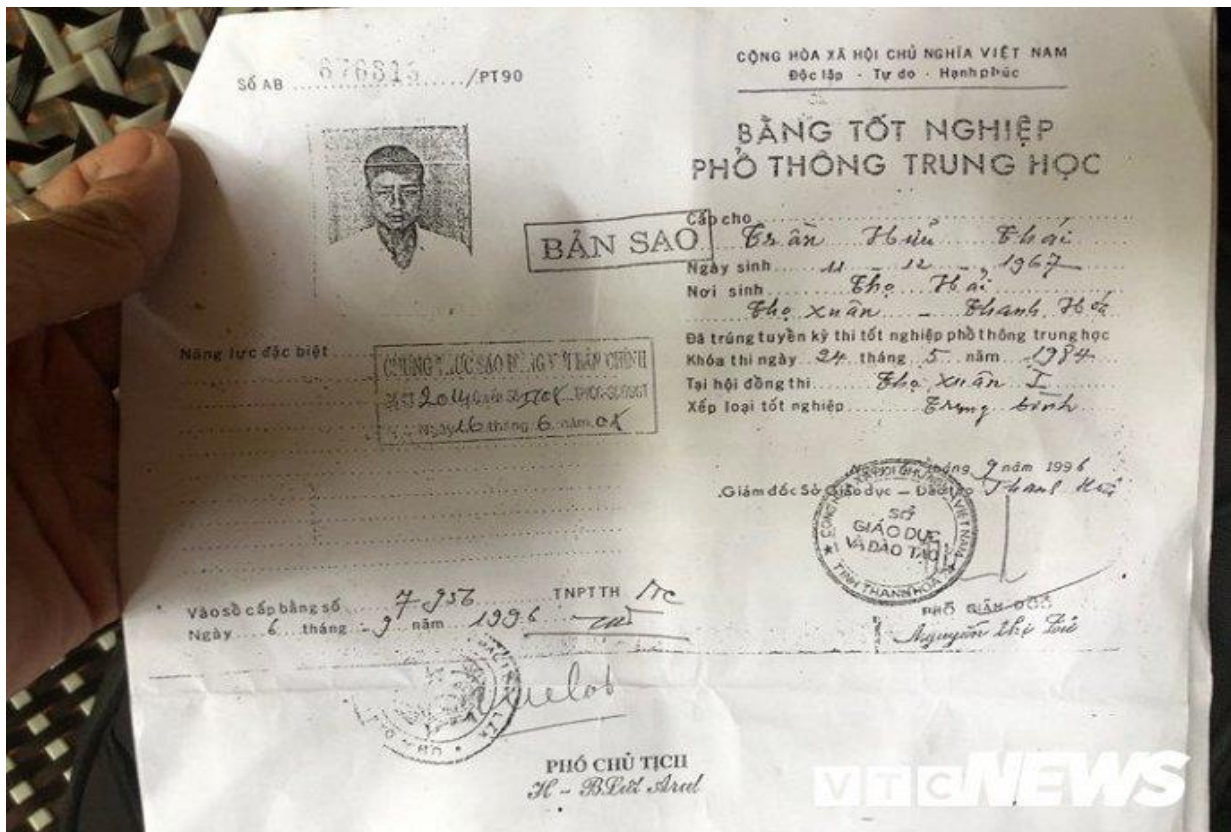 Số AB 676815 /PT90
CỘNG HÒA XÃ HỘI CHỦ NGHĨA VIỆT NAM
Độc lập - Tự do - Hạnh phúc
BẰNG TỐT NGHIỆP
PHỔ THÔNG TRUNG HỌC
BẢN SAO
Cấp cho
Trần Hữu Thái
Ngày sinh 11 - 12 - 1967
Nơi sinh Thọ Hải
Thọ Xuân - Thanh Hoá
Đã trúng tuyển kỳ thi tốt nghiệp phổ thông trung học
Khóa thi ngày 24 tháng 5 năm 1984
Tại hội đồng thi Thọ Xuân I
Xếp loại tốt nghiệp Trung bình
Năng lực đặc biệt
CHỨNG THỰC SAO ĐÚNG VỚI BẢN CHÍNH
Ngày 16 tháng 6 năm 08
tháng 9 năm 1996
Giám đốc Sở Giáo dục — Đào tạo Thanh Hoá
CỘNG HÒA XÃ HỘI CHỦ NGHĨA VIỆT NAM
SỞ
GIÁO DỤC
VÀ ĐÀO TẠO
TỈNH THANH HOÁ
PHÓ GIÁM ĐỐC
Nguyễn Thị
Vào sổ cấp bằng số 7956 TNPTTH
Ngày 6 tháng 9 năm 1996
PHÓ CHỦ TỊCH
VTC NEWS